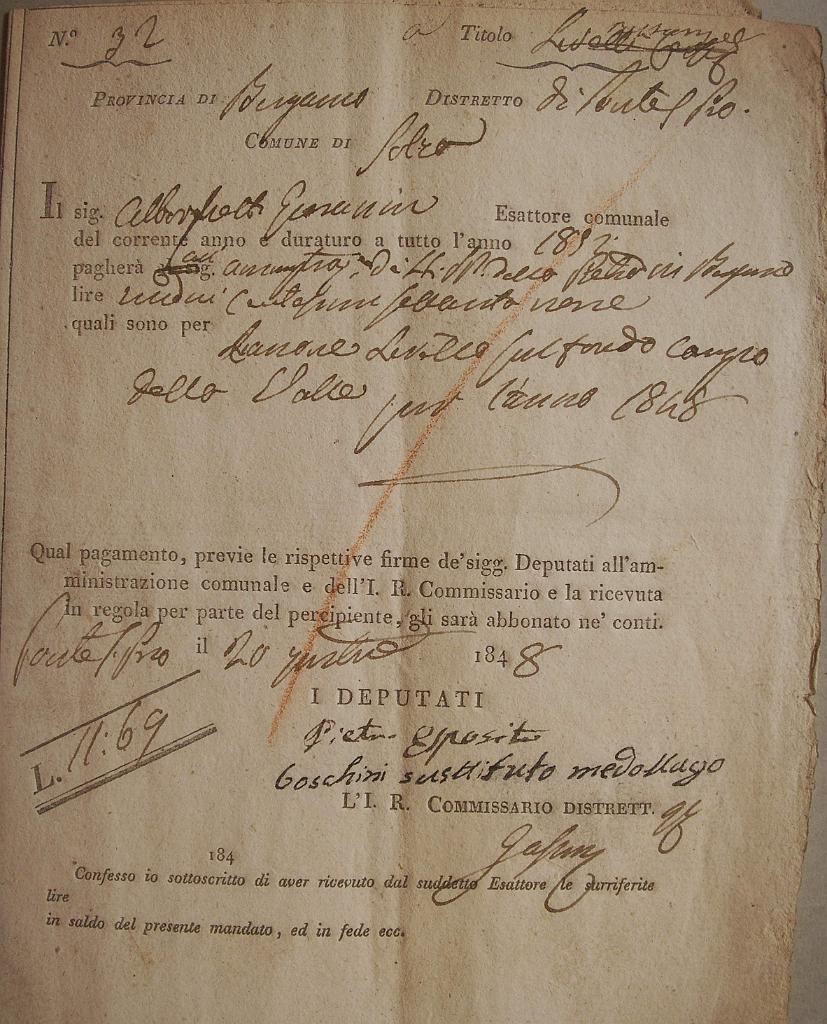 N.º 32 Titolo
Provincia di Bergamo Distretto di Ponte S. Pro.
Comune di Solza
Il sig. Giovanni Esattore comunale
del corrente anno e duraturo a tutto l'anno 1852.
pagherà in Bergamo
lire undici Centesimi sessantanove
quali sono per
Canone Livello sul fondo Campo
della Valle per l'anno 1848
Qual pagamento, previe le rispettive firme de'sigg. Deputati all'am-
ministrazione comunale e dell'I. R. Commissario e la ricevuta
in regola per parte del percipiente, gli sarà abbonato ne' conti.
Ponte S. Pro il 20 1848
I DEPUTATI
Pietro Esposito
boschini sustituto medollago
L. 11:69
L'I. R. Commissario distrett.
184
Confesso io sottoscritto di aver ricevuto dal suddetto Esattore le surriferite
lire
in saldo del presente mandato, ed in fede ecc.